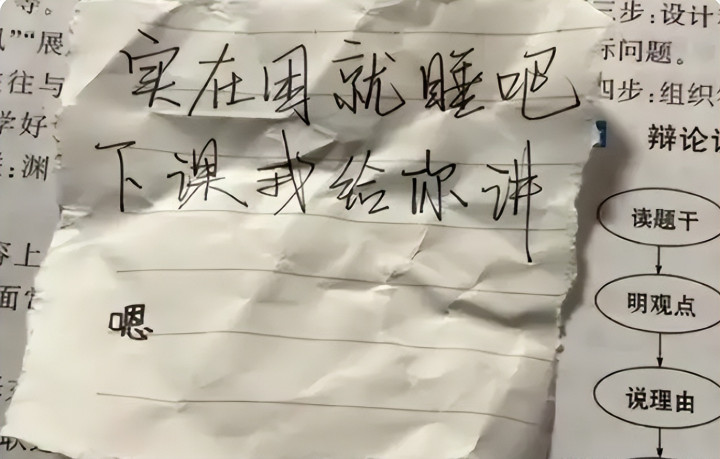 等。
”“展
往与
学好
:渊
上
面
实在困就睡吧
下课我给你讲
嗯
三步:设计
际问题。
四步:组织
辩论
读题干
明观点
说理由